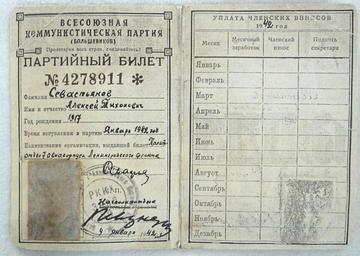 ВСЕСОЮЗНАЯ
КОММУНИСТИЧЕСКАЯ ПАРТИЯ
(БОЛЬШЕВИКОВ)
Пролетарии всех стран, соединяйтесь!
ПАРТИЙНЫЙ БИЛЕТ
№ 4278911 *
Фамилия Севастьянов
Имя и отчество Алексей Тихонович
Год рождения 1917
Время вступления в партию Январь 1942 год
Наименование организации, выдавшей билет
отдел Ленинградского фронта
4 января 1942 г.
УПЛАТА ЧЛЕНСКИХ ВЗНОСОВ
1942 ГОД
Месяц
Месячный заработок
Членский взнос
Подпись секретаря
Январь
Февраль
Март
Апрель
Май
Июнь
Июль
Август
Сентябрь
Октябрь
Ноябрь
Декабрь